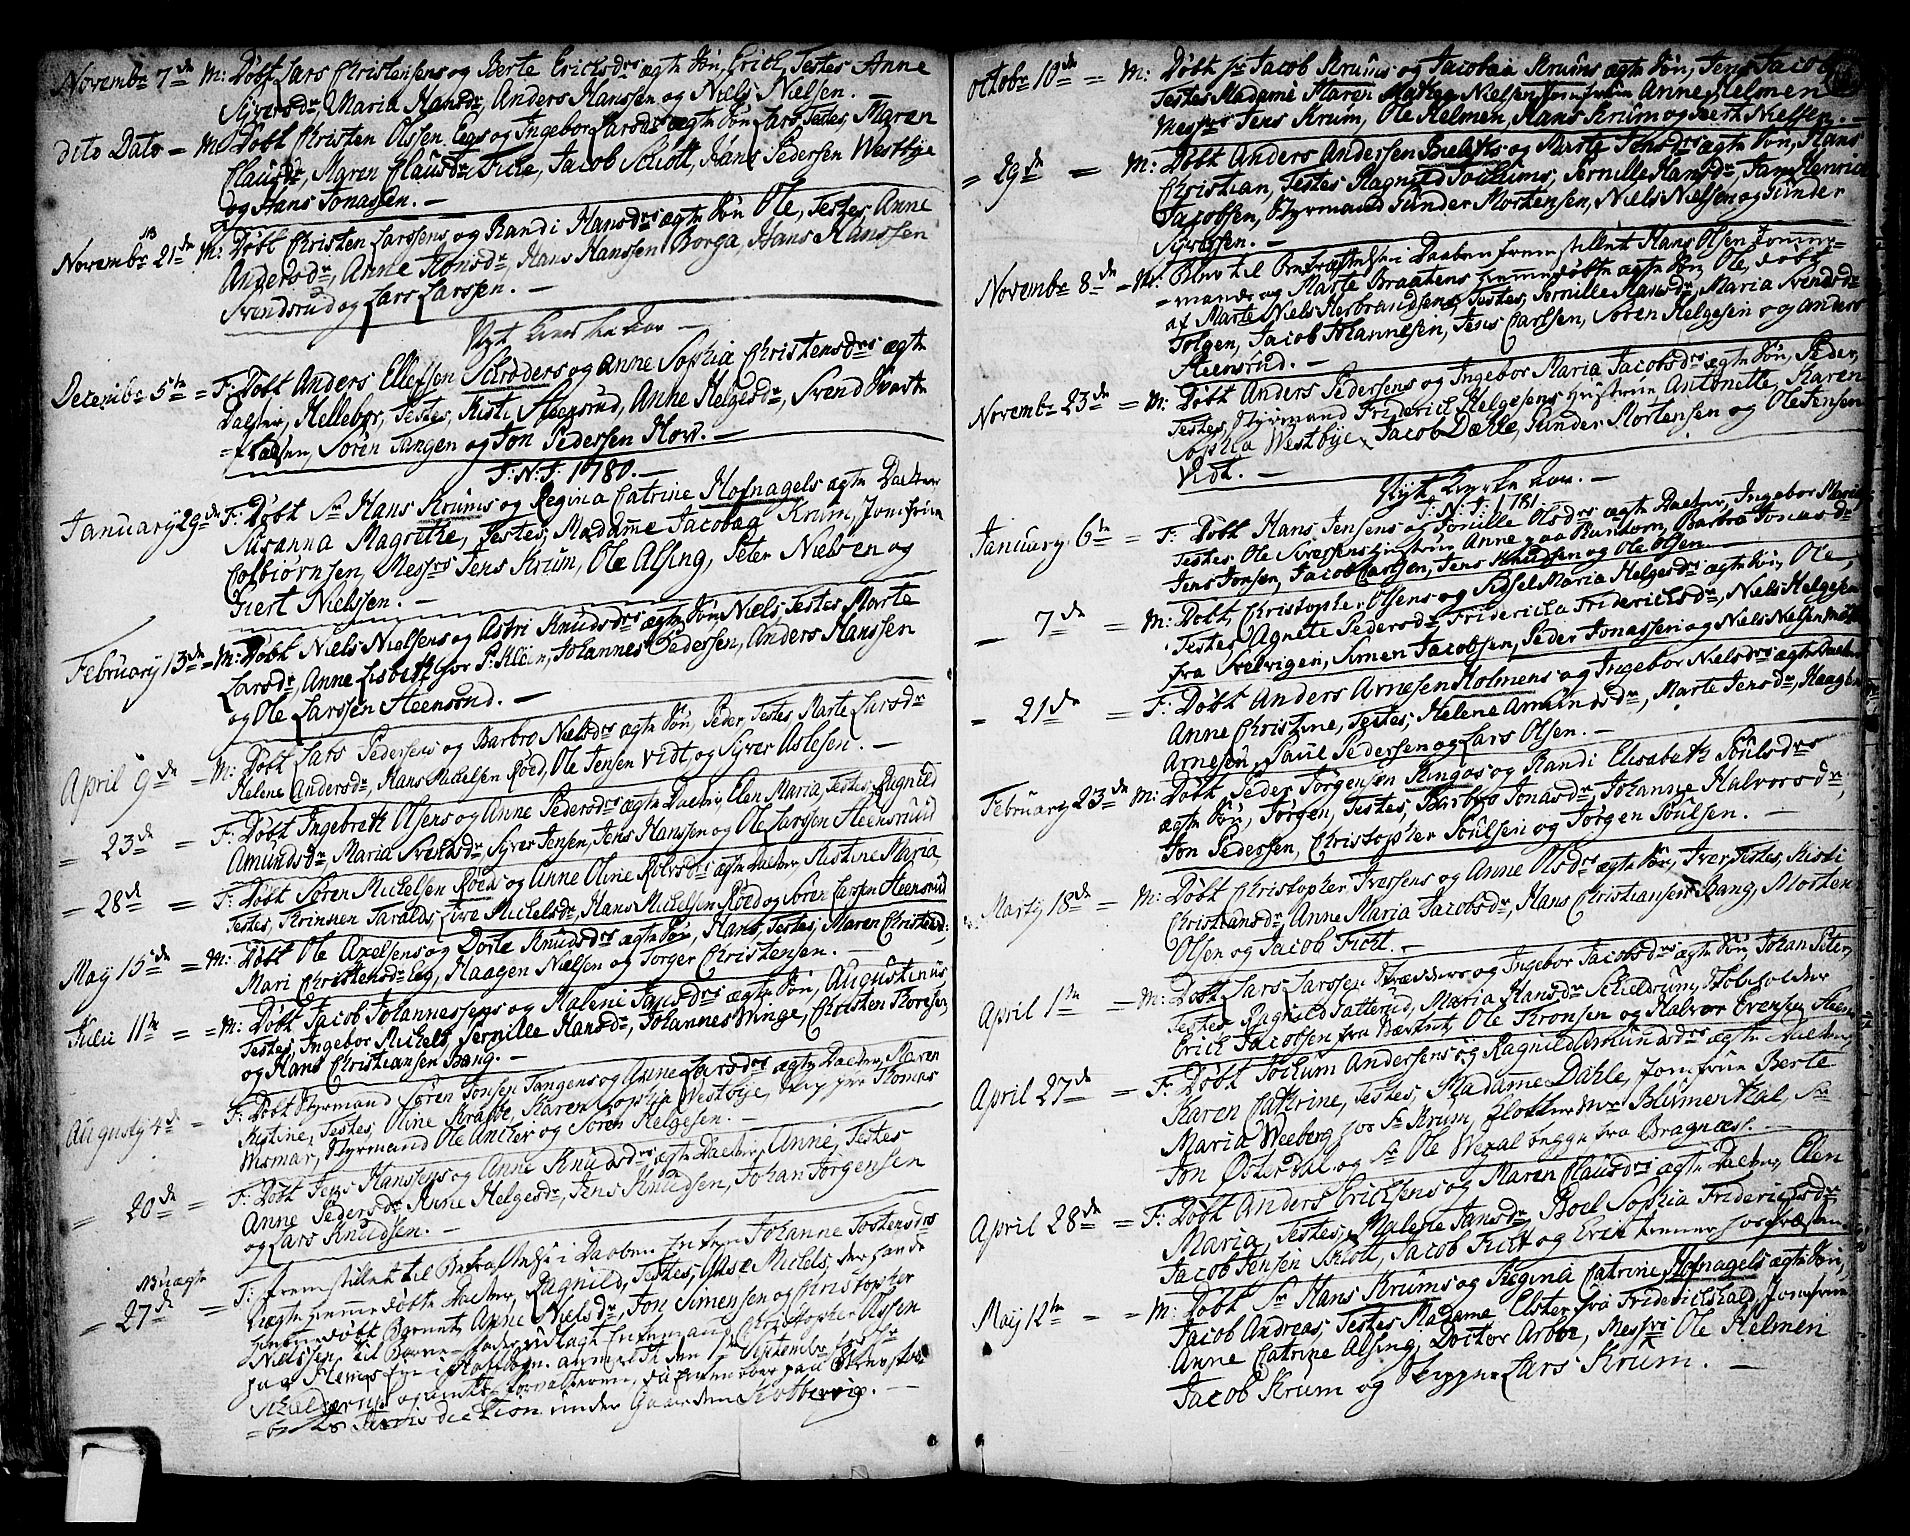 Novembr 7de M: Døbt Lars Christensens og Berte Erichsdrs ægte Søn, Erich, Testes Anne
Siversdr, Maria Hansdr, Anders Hanssen og Niels Nielsen. —
dito Dato — M: Døbt Christen Olssen Eegs og Ingebor Larsdrs ægte Søn Lars Testes, Maren
Clausdr, Maren Clausdr Ficke, Jacob Schott, Hans Pedersen Westbye
og Hans Jonassen. —
Novembr 21de M: Døbt Christen Larssens og Randi Hansdrs ægte Søn Ole, Testes, Anne
Andersdr, Anne Hansdr, Hans Hanssen Borga, Hans Hanssen
Svendsrud og Lars Larsen. —
Nyt Kirke Aar —
Decembr 5te = F: Døbt Anders Ellefsen Schrøders og Anne Sophia Christensdrs ægte
Datter, Hellebor, Testes, Kisti Steensrud, Anne Helgesdr, Svend
Søren Tangen og Jon Pedersen Horn. —
I: N: J: 1780. —
January 29de F: Døbt Sr Hans Krums og Regina Catrine Hofnagels ægte Datter
Susanna Magrethe, Testes, Madamme Jacobæa Krum, Jomfrue
Colbiørnsen, Messrs Jens Krum, Ole Alsing, Peter Nielsen og
Giert Nielssen. —
February 13de = M: Døbt Niels Nielsens og Astri Knudsdrs ægte Søn Niels, Testes Marte
Larsdr, Anne Lisbeth hos P: Klein, Johannes Pedersen, Anders Hanssen
og Ole Larssen Steensrud. —
April 9de — M: Døbt Lars Pedersens og Barbro Nielsdrs ægte Søn, Peder, Testes, Marte Larsdr
Helene Andersdr, Hans Michelsen Røed, Ole Jensen Vidt og Syver Aslesen. —
— 23de = F: Døbt Ingebreth Olsens og Anne Pedersdrs ægte Datter, Elen Maria, Testes, Ragnild
Amundsdr, Maria Svendsdr, Syver Jensen, Jens Hanssen og Ole Larssen Steensrud
— 28de = F: Døbt Søren Michelsen Røeds og Anne Oline Rolvsdrs ægte Datter, Kistine Maria
Testes, Thrinnen Taralds, Live Michelsdr, Hans Michelsen Røed og Søren Larssen Steensrud
May 15de = M: Døbt Ole Axelsens og Dorte Knudsdrs ægte Søn, Hans, Testes, Maren Christensdr
Mari Christensdr Eeg, Haagen Nielsen og Torger Christensen.
Julii 11te = M: Døbt Jacob Johannessens og Malene Jansdrs ægte Søn, Augustinus,
Testes, Ingebor Michels, Pernille Hansdr, Johannes Winge, Christen Thoresen,
og Hans Christiansen Bang. —
Augusty 4de = F: Døbt Styrmand Søren Jonsen Tangens og Anne Larsdrs ægte Datter, Maren
Kistine, Testes, Oline Krabbe, Karen Sophia Westbye, Thomas
Wismar, Styrmand Ole Ancher og Søren Helgesen. —
— 20de = F: Døbt Jens Hanssens og Anne Knudsdrs ægte Datter, Anne, Testes
Anne Pedersdr, Anne Helgesdr, Jens Knudsen, Johan Jørgensen
og Lars Knudsen. —
NB uægte
— 27de = F: fremstillet til Bekræftelse i Daaben Enken Johanne Tostensdrs
uægte hiemmedøbte Datter, Ragnild, Testes, Aase Michels, der havde
hiemmedøbt Barnet, Anne Nielsdr, Jon Simensen og Christopher
Nielssen, til Barne-fader udlagt Enkemand Christopher Olssen
1ste Septembr
Jurisdiction under Gaarden Stotbervig. —
Octobr 10de = M: Døbt Sr Jacob Krums og Jacobæa Krums ægte Søn, Jens Jacob
Testes Madame Maren Nielsen Jomfrue Anne Helmen
Messrs Jens Krum, Ole Helmen, Hans Krum og Giert Nielsen. —
= 29de = M: Døbt Anders Andersen og Marte Jensdrs ægte Søn, Hans
Christian, Testes Ragnild Jochims, Pernille Hansdr, Jan Henrich
Jacobsen, Styrmand Gunder Mortensen, Niels Nielsen og Gunder
Sivessen. —
Novembr 8de — M: Blev til Bekræftelse i Daaben fremstillet Hans Olsen Tømme-
-mands og Marte Braatens hiemmedøbte ægte Søn Ole, døbt
af Marte Niels Herbrandsens, Testes, Pernille Hansdr, Maria Svendsdr
Tolgen, Jacob Johannesen, Jens Carlsen, Søren Helgesen og Anders
Steensrud. —
Novembr 23de = M: Døbt Anders Pedersens og Ingebor Maria Jacobsdrs ægte Søn, Peder,
Testes, Styrmand Friderich Helgesens Hustrue Antonette, Karen
Sophia Westbye, Jacob Dahle, Gunder Mortensen og Ole Jensen
Vidt. —
Nyt Kirke Aar. —
I: N: J: 1781
January 6te = F: Døbt Hans Jensens og Pernille Olsdrs ægte Datter, Ingebor Maria
Testes Ole Sivessens Hustrue Anne paa Rundtom, Barbro Jonasdr
Jens Jonsen, Jacob Carlsen, Jens Knudsen og Ole Olsen.
— 7de = M: Døbt, Christopher Olsens og Sissel Maria Helgesdrs ægte Søn, Ole,
Testes Agnete Pedersdr, Fridericha Friderichsdr, Niels Helgesen
fra Svelvigen, Simen Jacobsen, Peder Jonassen og Niels Nielsen
— 21de = F: Døbt Anders Arnesen Holmens og Ingebor Nielsdrs ægte Datter
Anne Christine, Testes, Helene Amundsdr, Marte Jensdr, Haagen
Arnesen, Paul Pedersen og Lars Olsen. —
February 23de M: Døbt Peder Jørgensen Kingos og Randi Elisabeth Poulsdrs
ægte Søn, Jørgen, Testes, Barbro Jonasdr, Johanne Halvorsdr,
Jon Pedersen, Christopher Poulsen og Jørgen Poulsen. —
Marty 18de = M: Døbt Christopher Iversens og Anne Olsdrs ægte Søn, Iver, Testes, Kisti
Christiansdr, Anne Maria Jacobsdr, Hans Christiansen Bang, Morten
Olsen og Jacob Ficht. —
April 1ste = M: Døbt Lars Larssen Skrædders og Ingebor Jacobsdrs ægte Søn, Johan Peter,
Testes Ragnild Tatterud, Maria Hansdr Schielrum, Skoleholder
Erich Jacobsen fra Værket, Ole Kronsen og Halvor Evensen
April 27de = F: Døbt Jochum Andersens og Ragnild Amundsdrs ægte Datter,
Karen Cathrine, Testes, Madamme Dahle, Jomfrue Berte
Maria Weeberg hos Sr Krum, Klokker Mr Blumenthal, Sr
Jon Østerdal og Sr Ole Wexal begge fra Bragnæs. —
April 28de = F: Døbt Anders Erichsens og Maren Clausdrs ægte Datter, Elen
Maria, Testes, Malene Jansdr, Boel Sophia Friderichsdr
Jacob Jensen Schott, Jacob Ficht og Erich
May 12te = M: Døbt Sr Hans Krums og Regina Catrine Hofnagels ægte Søn,
Jacob Andreas, Testes Madame Elster fra Friderichshald, Jomfrue
Anne Catrine Alsing, Doctor Arboe, Messrs Ole Helmen
Jacob Krum og Skipper Lars Krum. —